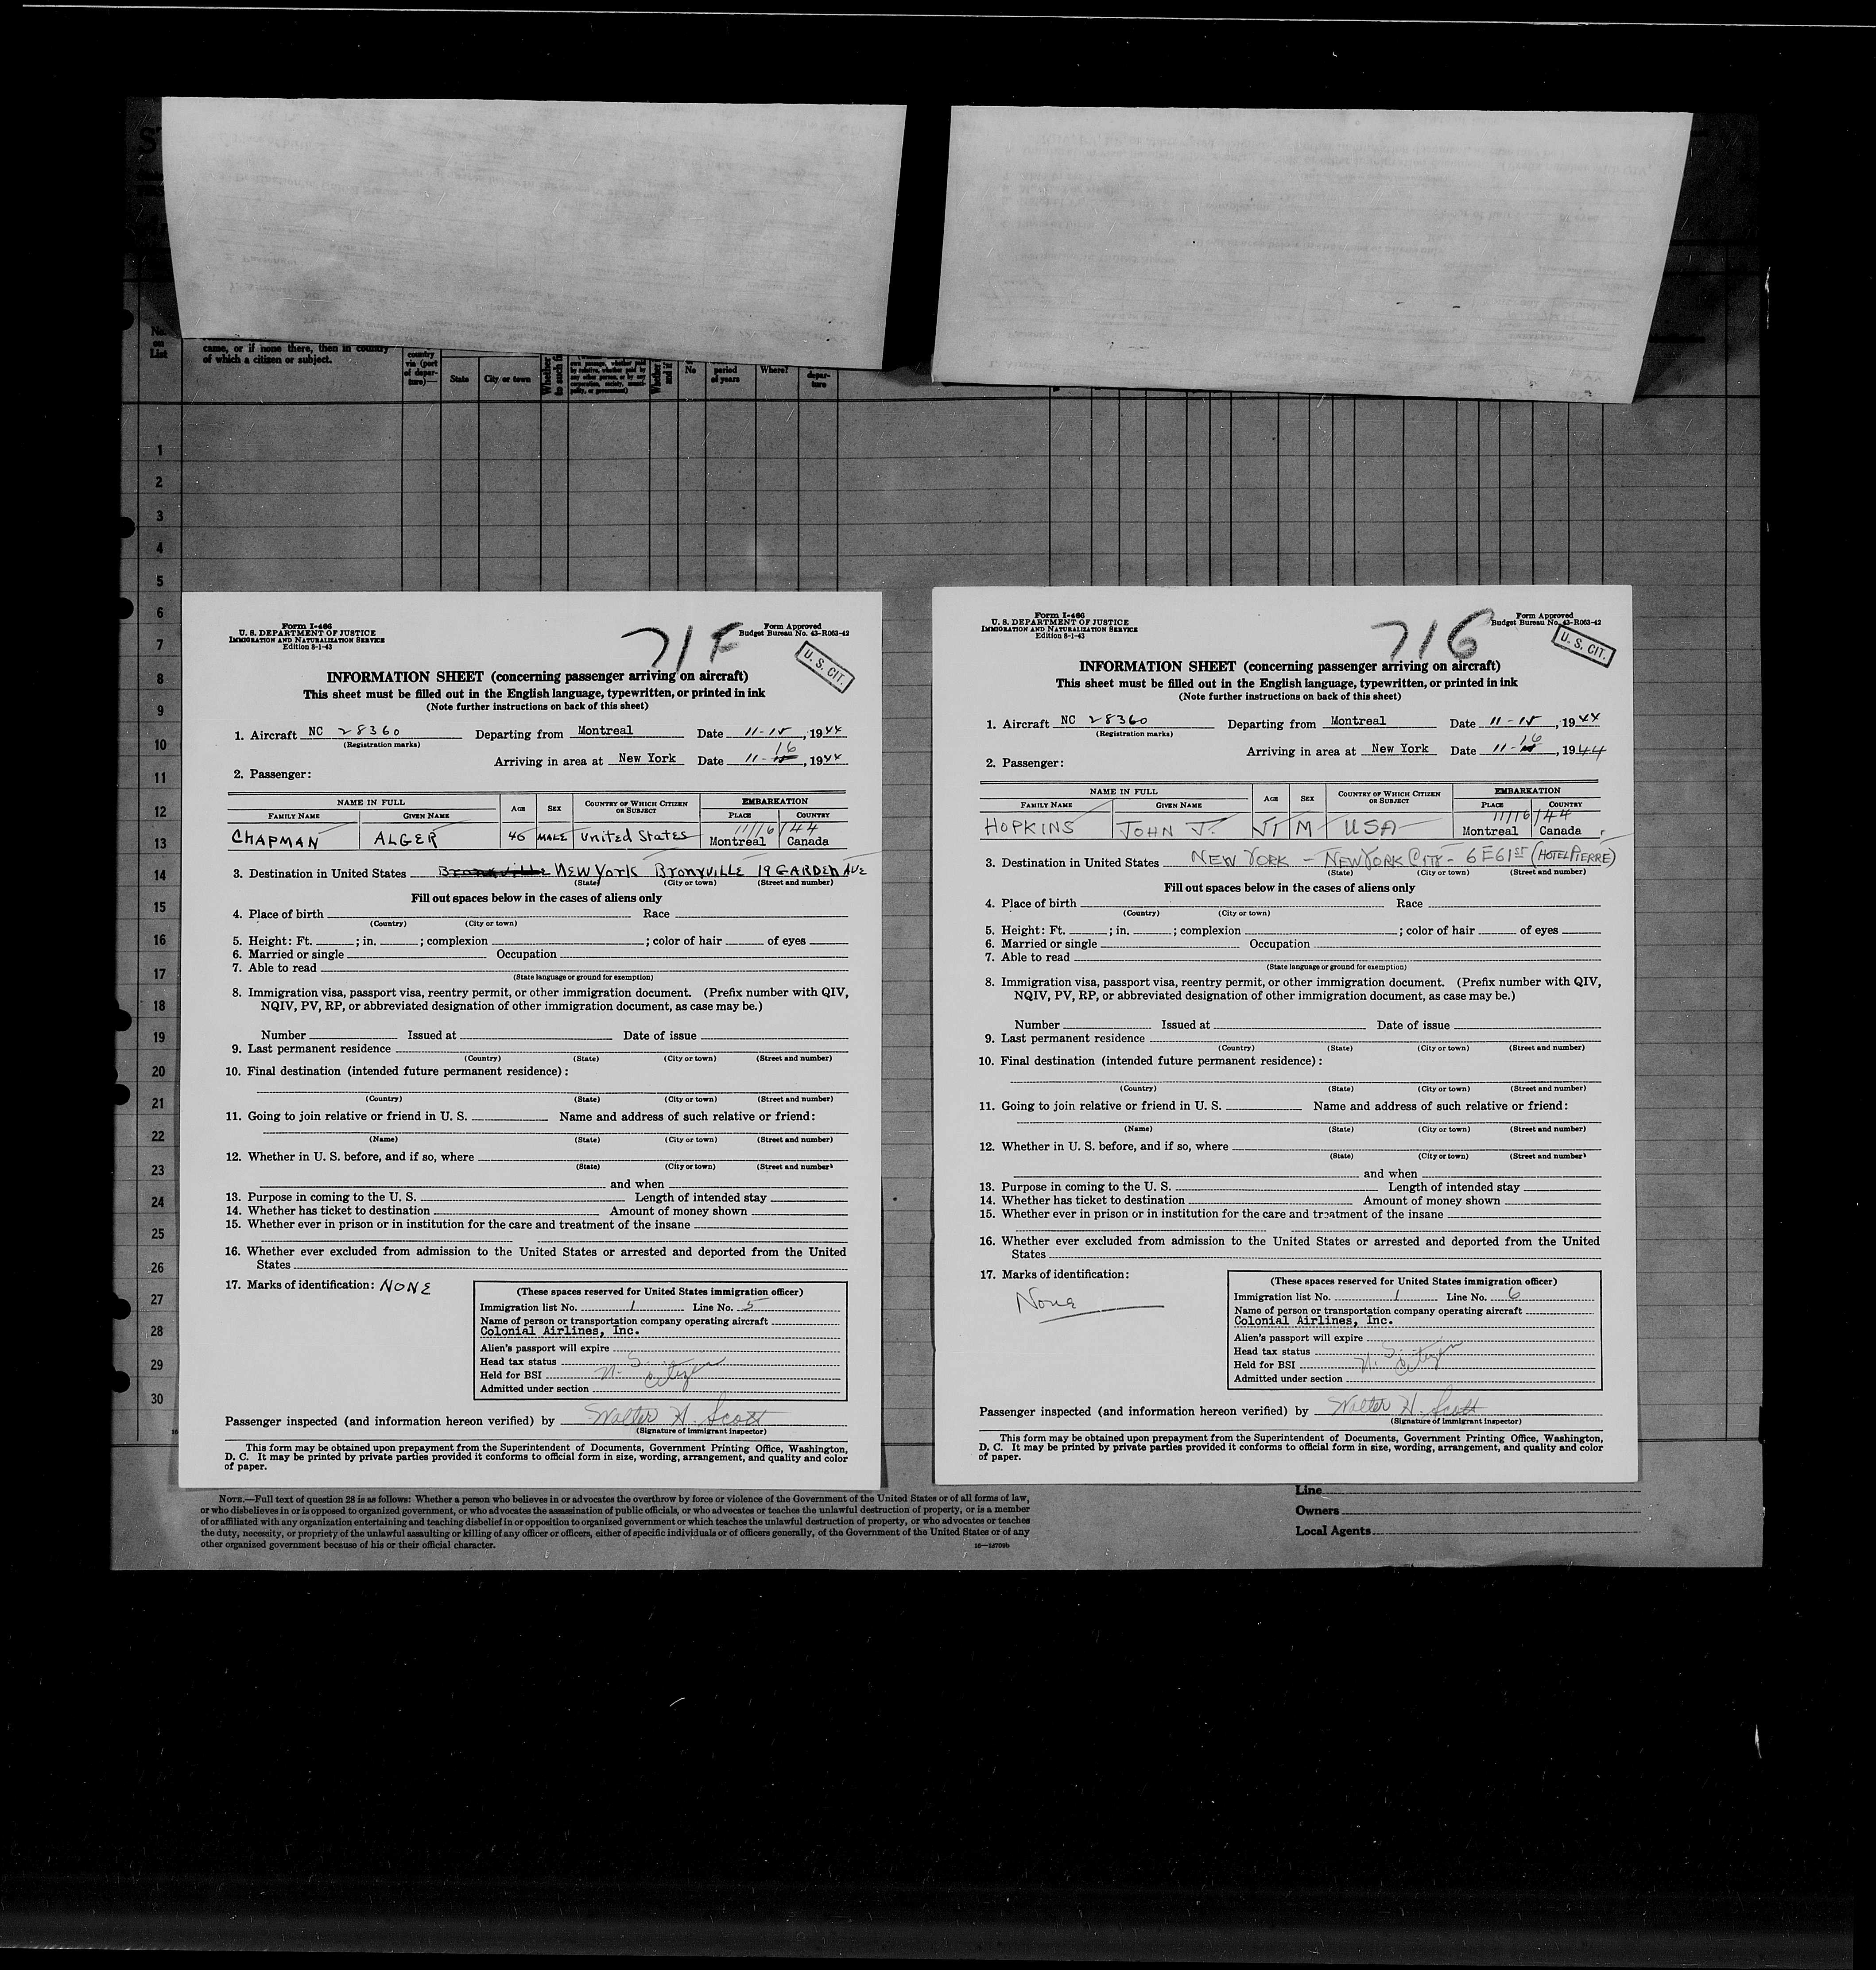 No.
on
List
came, or if none there, then in country
of which a citizen or subject.
country
via (port
of depar-
ture)—
State
City or town
No
period
of years
Where?
depar-
ture
1
2
3
4
5
6
7
8
9
10
11
12
13
14
15
16
17
18
19
20
21
22
23
24
25
26
27
28
29
30
Form I-466
U. S. DEPARTMENT OF JUSTICE
IMMIGRATION AND NATURALIZATION SERVICE
Edition 8-1-43
71F
Form Approved
Budget Bureau No. 43-R063-42
U. S. CIT.
INFORMATION SHEET (concerning passenger arriving on aircraft)
This sheet must be filled out in the English language, typewritten, or printed in ink
(Note further instructions on back of this sheet)
1. Aircraft NC 28360 Departing from Montreal Date 11-15, 1944
(Registration marks)
16
Arriving in area at New York Date 11-15, 1944
2. Passenger:
NAME IN FULL AGE SEX COUNTRY OF WHICH CITIZEN OR SUBJECT EMBARKATION
FAMILY NAME GIVEN NAME PLACE COUNTRY
11/16/44
CHAPMAN ALGER 46 MALE United States Montreal Canada
3. Destination in United States Bronxville NEW York Bronxville 19 GARDEN AVE
(State) (City or town) (Street and number)
Fill out spaces below in the cases of aliens only
4. Place of birth Race
(Country) (City or town)
5. Height: Ft. ; in. ; complexion ; color of hair of eyes
6. Married or single Occupation
7. Able to read
(State language or ground for exemption)
8. Immigration visa, passport visa, reentry permit, or other immigration document. (Prefix number with QIV,
NQIV, PV, RP, or abbreviated designation of other immigration document, as case may be.)
Number Issued at Date of issue
9. Last permanent residence
(Country) (State) (City or town) (Street and number)
10. Final destination (intended future permanent residence):
(Country) (State) (City or town) (Street and number)
11. Going to join relative or friend in U. S. Name and address of such relative or friend:
(Name) (State) (City or town) (Street and number)
12. Whether in U. S. before, and if so, where
(State) (City or town) (Street and number)
and when
13. Purpose in coming to the U. S. Length of intended stay
14. Whether has ticket to destination Amount of money shown
15. Whether ever in prison or in institution for the care and treatment of the insane
16. Whether ever excluded from admission to the United States or arrested and deported from the United
States
17. Marks of identification: NONE
(These spaces reserved for United States immigration officer)
Immigration list No. 1 Line No. 5
Name of person or transportation company operating aircraft
Colonial Airlines, Inc.
Alien's passport will expire
Head tax status
Held for BSI U. S. Citizen
Admitted under section
Passenger inspected (and information hereon verified) by Walter H. Scott
(Signature of immigrant inspector)
This form may be obtained upon prepayment from the Superintendent of Documents, Government Printing Office, Washington,
D. C. It may be printed by private parties provided it conforms to official form in size, wording, arrangement, and quality and color
of paper.
Form I-466
U. S. DEPARTMENT OF JUSTICE
IMMIGRATION AND NATURALIZATION SERVICE
Edition 8-1-43
71G
Form Approved
Budget Bureau No. 43-R063-42
U. S. CIT.
INFORMATION SHEET (concerning passenger arriving on aircraft)
This sheet must be filled out in the English language, typewritten, or printed in ink
(Note further instructions on back of this sheet)
1. Aircraft NC 28360 Departing from Montreal Date 11-15, 1944
(Registration marks)
16
Arriving in area at New York Date 11-15, 1944
2. Passenger:
NAME IN FULL AGE SEX COUNTRY OF WHICH CITIZEN OR SUBJECT EMBARKATION
FAMILY NAME GIVEN NAME PLACE COUNTRY
11/16/44
HOPKINS JOHN J. 51 M USA Montreal Canada
3. Destination in United States NEW YORK - NEW YORK CITY - 6 E 61ST (HOTEL PIERRE)
(State) (City or town) (Street and number)
Fill out spaces below in the cases of aliens only
4. Place of birth Race
(Country) (City or town)
5. Height: Ft. ; in. ; complexion ; color of hair of eyes
6. Married or single Occupation
7. Able to read
(State language or ground for exemption)
8. Immigration visa, passport visa, reentry permit, or other immigration document. (Prefix number with QIV,
NQIV, PV, RP, or abbreviated designation of other immigration document, as case may be.)
Number Issued at Date of issue
9. Last permanent residence
(Country) (State) (City or town) (Street and number)
10. Final destination (intended future permanent residence):
(Country) (State) (City or town) (Street and number)
11. Going to join relative or friend in U. S. Name and address of such relative or friend:
(Name) (State) (City or town) (Street and number)
12. Whether in U. S. before, and if so, where
(State) (City or town) (Street and number)
and when
13. Purpose in coming to the U. S. Length of intended stay
14. Whether has ticket to destination Amount of money shown
15. Whether ever in prison or in institution for the care and treatment of the insane
16. Whether ever excluded from admission to the United States or arrested and deported from the United
States
17. Marks of identification:
None
(These spaces reserved for United States immigration officer)
Immigration list No. 1 Line No. 6
Name of person or transportation company operating aircraft
Colonial Airlines, Inc.
Alien's passport will expire
Head tax status
Held for BSI U. S. Citizen
Admitted under section
Passenger inspected (and information hereon verified) by Walter H. Scott
(Signature of immigrant inspector)
This form may be obtained upon prepayment from the Superintendent of Documents, Government Printing Office, Washington,
D. C. It may be printed by private parties provided it conforms to official form in size, wording, arrangement, and quality and color
of paper.
NOTE.—Full text of question 28 is as follows: Whether a person who believes in or advocates the overthrow by force or violence of the Government of the United States or of all forms of law,
or who disbelieves in or is opposed to organized government, or who advocates the assassination of public officials, or who advocates or teaches the unlawful destruction of property, or is a member
of or affiliated with any organization entertaining and teaching disbelief in or opposition to organized government or which teaches the unlawful destruction of property, or who advocates or teaches
the duty, necessity, or propriety of the unlawful assaulting or killing of any officer or officers, either of specific individuals or of officers generally, of the Government of the United States or of any
other organized government because of his or their official character.
Line
Owners
Local Agents